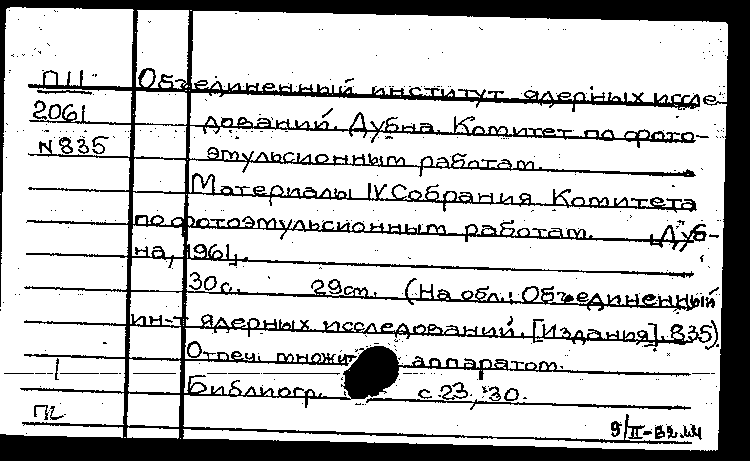 П11 Объединенный институт ядерных иссле-
2061 дований. Дубна. Комитет по фото-
N 835 эмульсионным работам.
Материалы IV Собрания Комитета
по фотоэмульсионным работам. Дуб-
на, 1961г.
30с. 29см. (На обл.: Объединенный
ин-т ядерных исследований. [Издания]. 835)
Отпеч. множит. аппаратом.
1
Библиогр. с 23, 30.